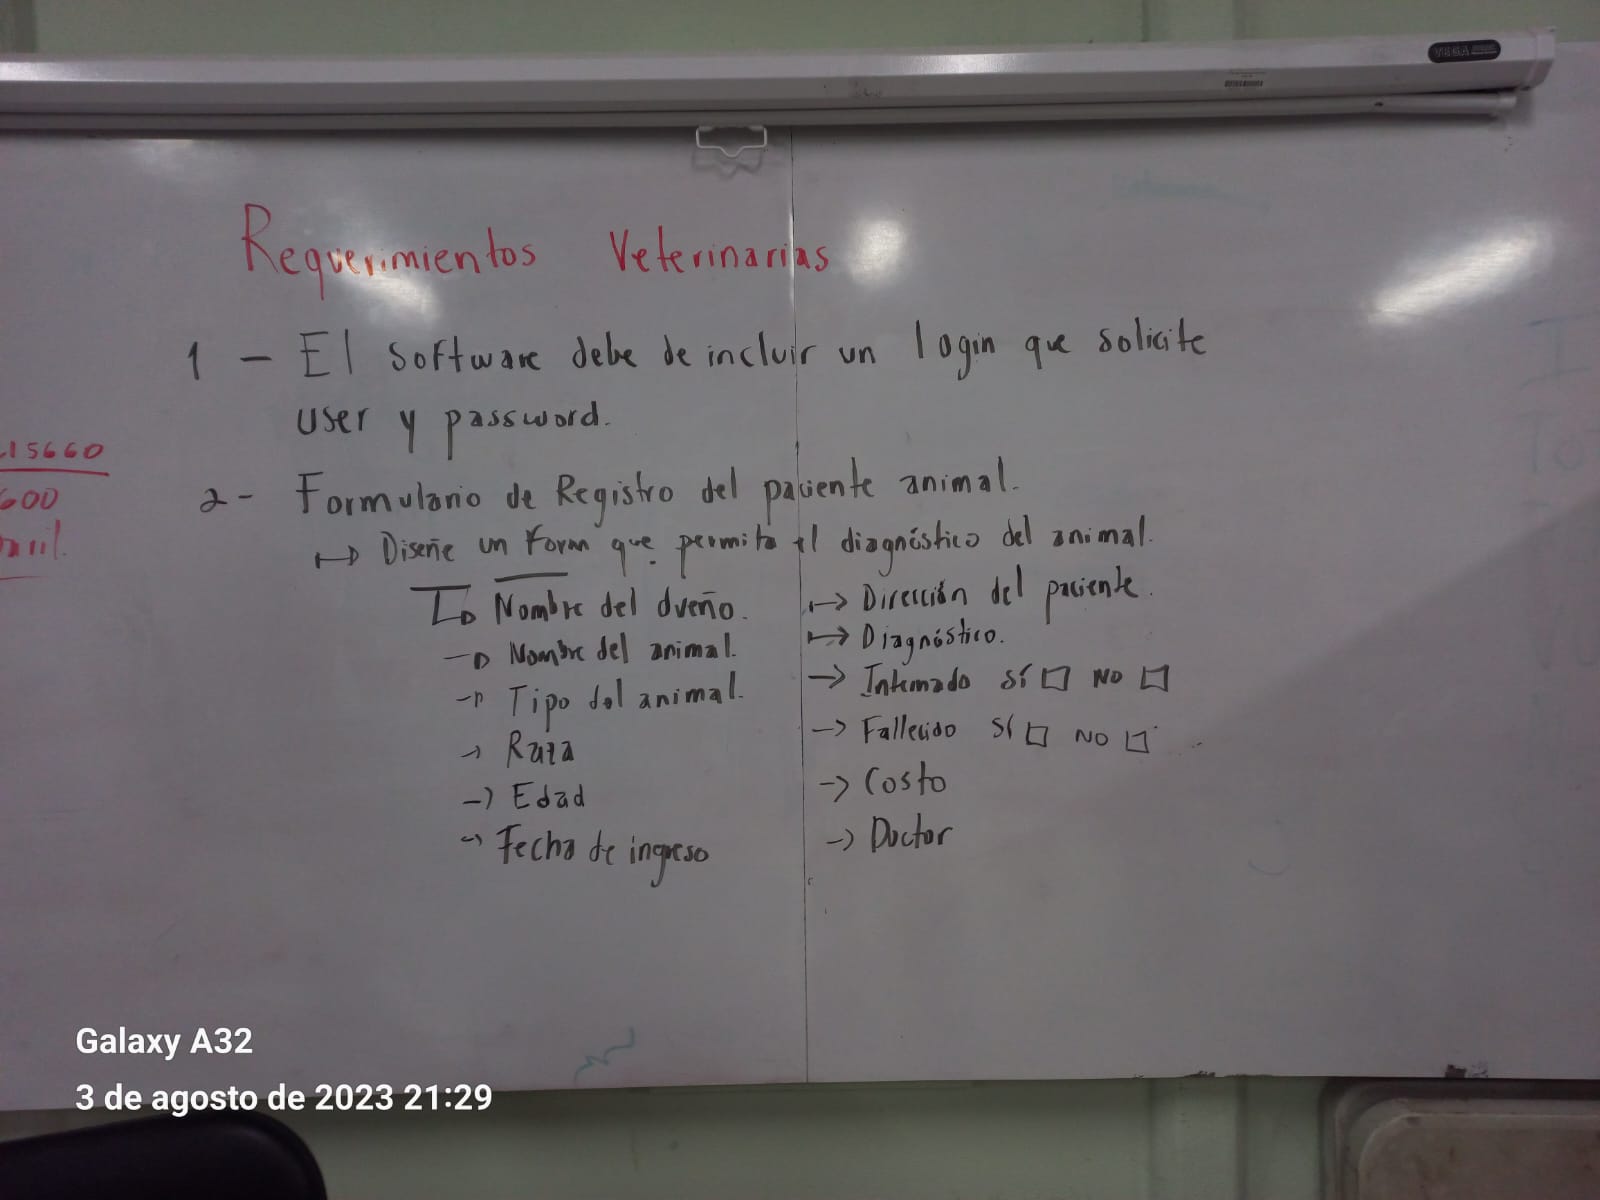 VEGA
Requerimientos Veterinarias
1 - El software debe de incluir un login que solicite
user y password.
15660
600
2- Formulario de Registro del paciente animal.
↦ Diseñe un Form que permita el diagnóstico del animal.
Nombre del dueño.
Nombre del animal.
Tipo del animal.
→ Raza
→ Edad
→ Fecha de ingreso
↦ Dirección del paciente.
↦ Diagnóstico.
→ Internado SÍ □ NO □
→ Fallecido SÍ □ NO □
→ Costo
→ Doctor
Galaxy A32
3 de agosto de 2023 21:29